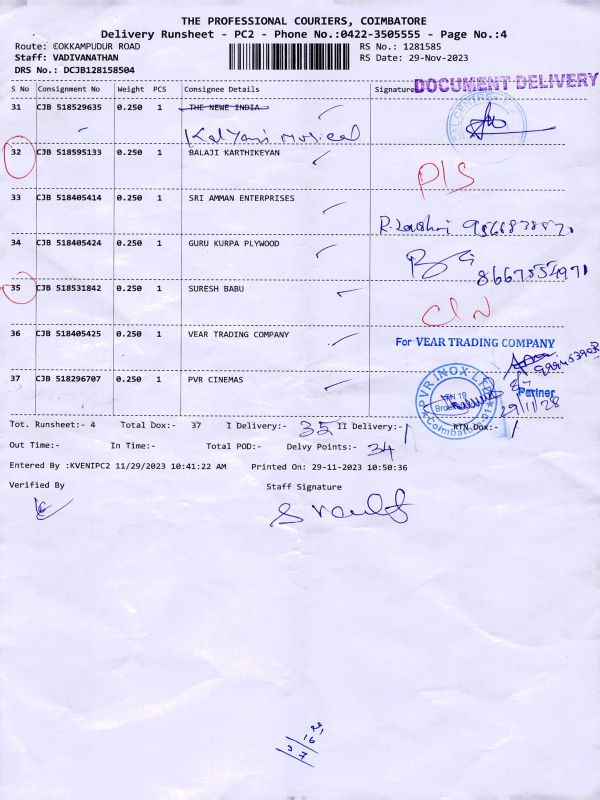 THE PROFESSIONAL COURIERS, COIMBATORE
Delivery Runsheet - PC2 - Phone No.:0422-3505555 - Page No.:4
Route: COKKAMPUDUR ROAD
RS No.: 1281585
Staff: VADIVANATHAN
RS Date: 29-Nov-2023
DRS No.: DCJB128158504
S No Consignment No Weight PCS Consignee Details Signature
DOCUMENT DELIVERY
31 CJB 518529635 0.250 1 THE NEWE INDIA
Kalyani Musical
32 CJB 518595133 0.250 1 BALAJI KARTHIKEYAN
P/S
33 CJB 518405414 0.250 1 SRI AMMAN ENTERPRISES
34 CJB 518405424 0.250 1 GURU KURPA PLYWOOD
8667554971
35 CJB 518531842 0.250 1 SURESH BABU
C/N
36 CJB 518405425 0.250 1 VEAR TRADING COMPANY
For VEAR TRADING COMPANY
37 CJB 518296707 0.250 1 PVR CINEMAS
Partner
PVR INOX LTD
Coimbatore
Tot. Runsheet:- 4 Total Dox:- 37 I Delivery:- 35 II Delivery:- 1 RTN Dox:- 1
Out Time:- In Time:- Total POD:- Delvy Points:- 34
Entered By :KVENIPC2 11/29/2023 10:41:22 AM Printed On: 29-11-2023 10:50:36
Verified By Staff Signature
21
16
37